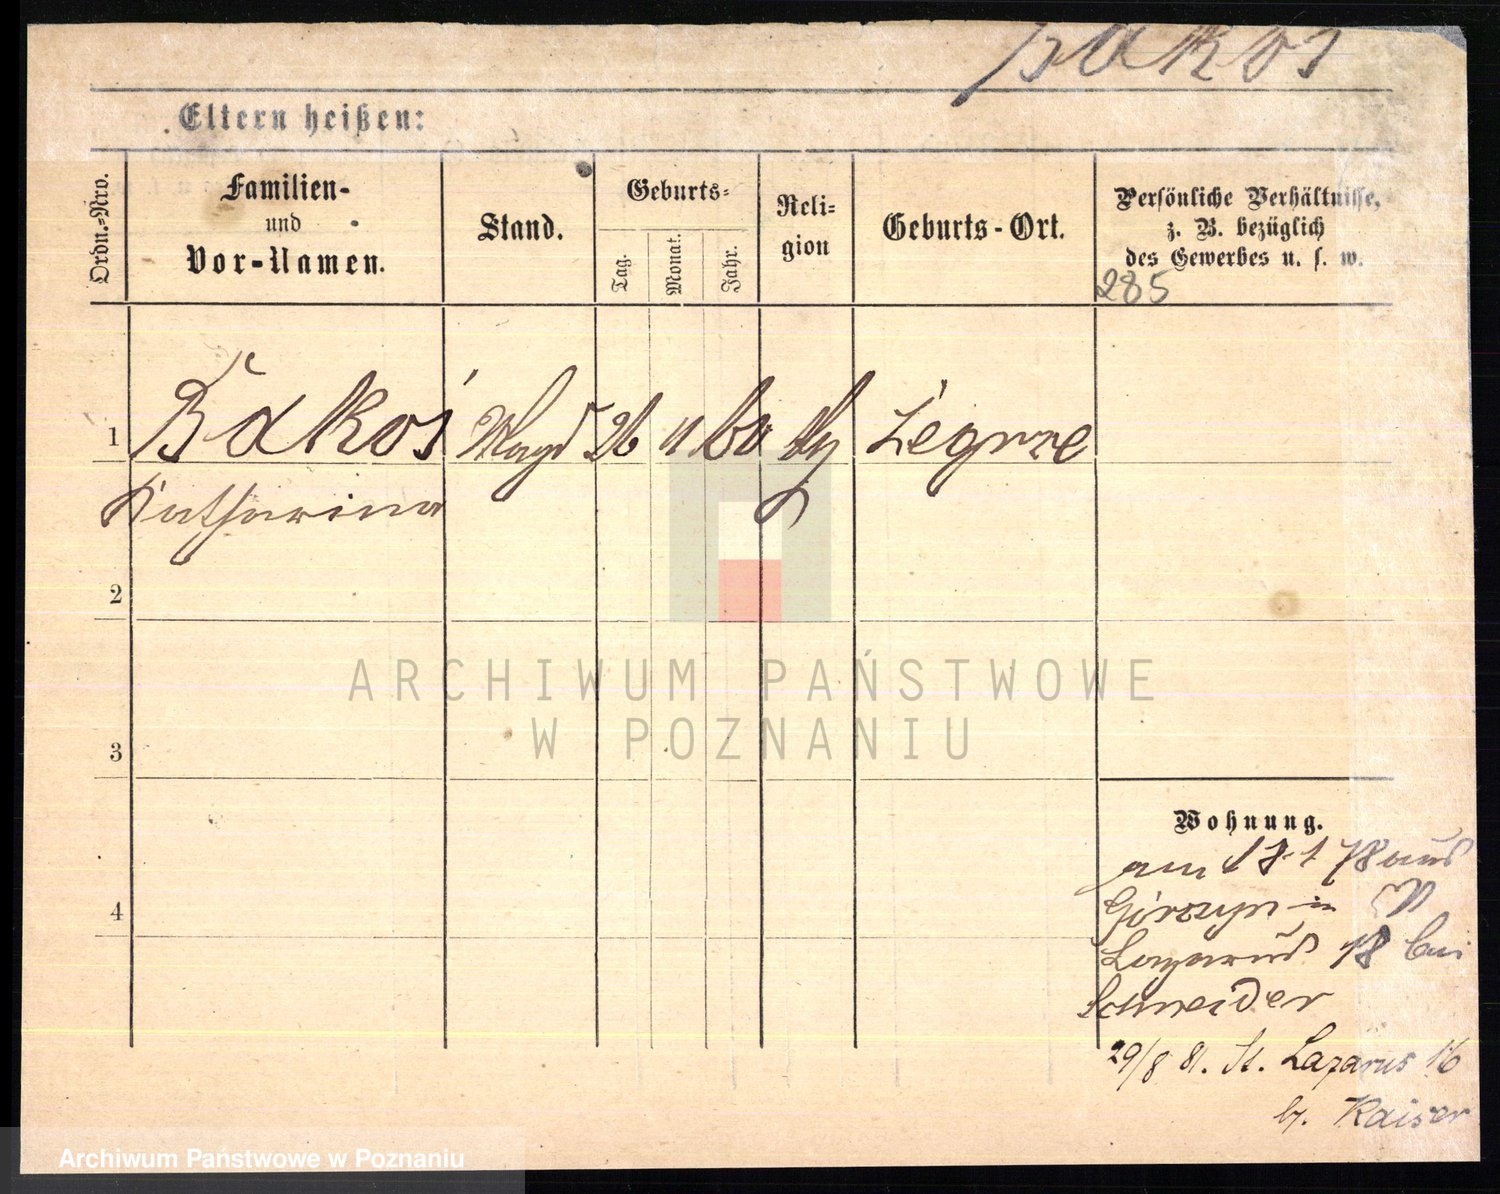 Bakoś
Eltern heißen:
Ordn.-Nro.
Familien-
und
Vor-Namen.
Stand.
Geburts-
Tag.
Monat.
Jahr.
Reli-
gion
Geburts-Ort.
Persönliche Verhältnisse,
z. B. bezüglich
des Gewerbes u. s. w.
285
1 Bakoś Magd 26 11 60 Żegrze
Katharina
2
3
4
Wohnung.
am 17.1 78 aus
Gurczyn in
Lazarus 18 bei
Schneider
29/8 81. St. Lazarus 16
b. Kaiser
ARCHIWUM PAŃSTWOWE
W POZNANIU
Archiwum Państwowe w Poznaniu